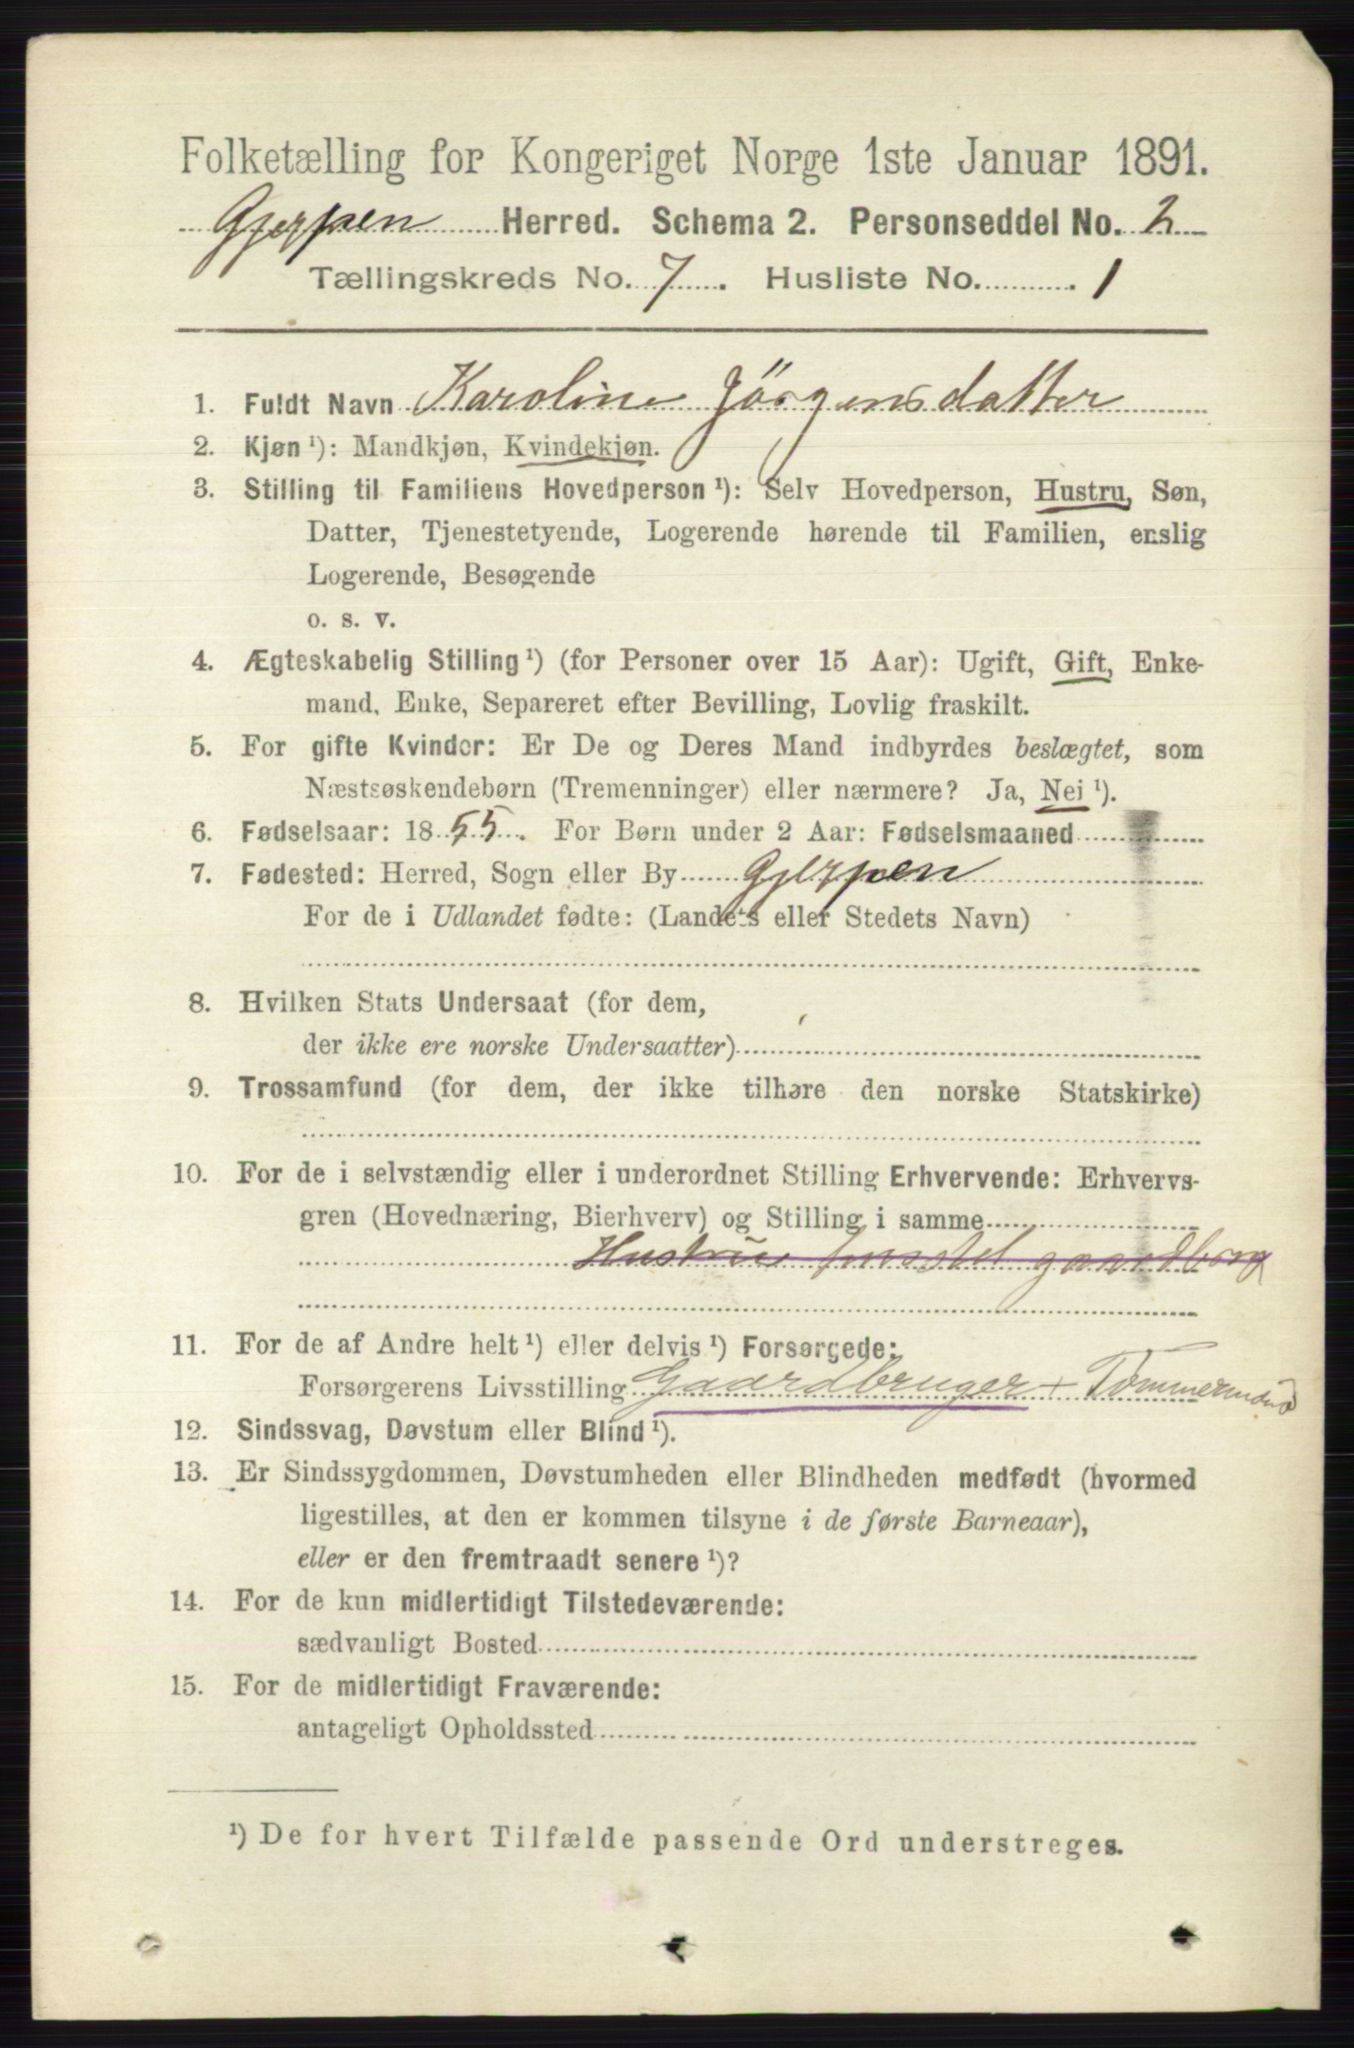 Folketælling for Kongeriget Norge 1ste Januar 1891.
Gjerpen Herred. Schema 2. Personseddel No. 2
Tællingskreds No. 7. Husliste No. 1
1. Fuldt Navn Karoline Jörgensdatter
2. Kjøn ¹): Mandkjøn, Kvindekjøn.
3. Stilling til Familiens Hovedperson ¹): Selv Hovedperson, Hustru, Søn,
Datter, Tjenestetyende, Logerende hørende til Familien, enslig
Logerende, Besøgende
o. s. v.
4. Ægteskabelig Stilling ¹) (for Personer over 15 Aar): Ugift, Gift, Enke-
mand, Enke, Separeret efter Bevilling, Lovlig fraskilt.
5. For gifte Kvinder: Er De og Deres Mand indbyrdes beslægtet, som
Næstsøskendebørn (Tremenninger) eller nærmere? Ja, Nei ¹).
6. Fødselsaar: 1855. For Børn under 2 Aar: Fødselsmaaned
7. Fødested: Herred, Sogn eller By Gjerpen
For de i Udlandet fødte: (Landets eller Stedets Navn)
8. Hvilken Stats Undersaat (for dem,
der ikke ere norske Undersaatter)
9. Trossamfund (for dem, der ikke tilhøre den norske Statskirke)
10. For de i selvstændig eller i underordnet Stilling Erhvervende: Erhvervs-
gren (Hovednæring, Bierhverv) og Stilling i samme
Hustru
11. For de af Andre helt ¹) eller delvis ¹) Forsørgede:
Forsørgerens Livsstilling Gaardbruger + Tømmermand
12. Sindssvag, Døvstum eller Blind ¹).
13. Er Sindssygdommen, Døvstumheden eller Blindheden medfødt (hvormed
ligestilles, at den er kommen tilsyne i de første Barneaar),
eller er den fremtraadt senere ¹)?
14. For de kun midlertidigt Tilstedeværende:
sædvanligt Bosted
15. For de midlertidigt Fraværende:
antageligt Opholdssted
¹) De for hvert Tilfælde passende Ord understreges.